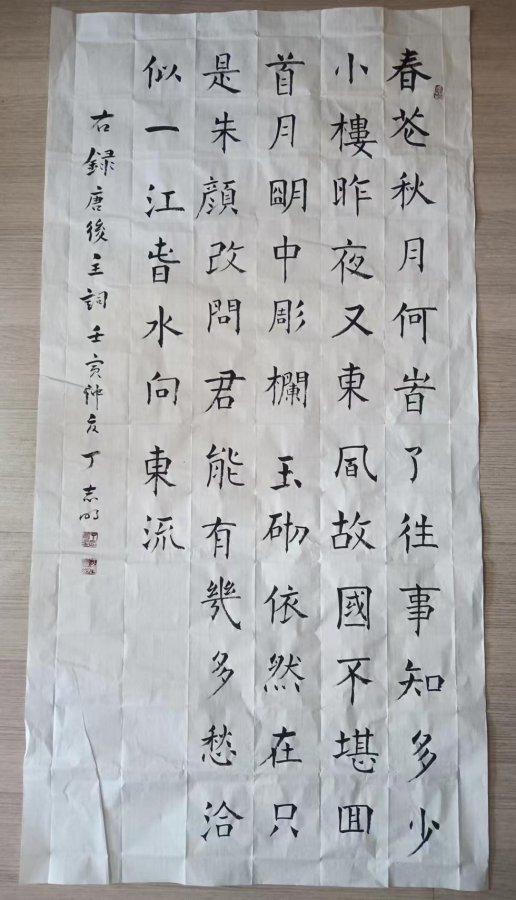 春花秋月何旹了徃事知多少
小樓昨夜又東凬故國不堪囬
首月朙中彫欄玉砌依然在只
是朱顔改問君能有幾多愁洽
似一江旾水向東流
右録唐後主詞壬寅仲夏丁志明